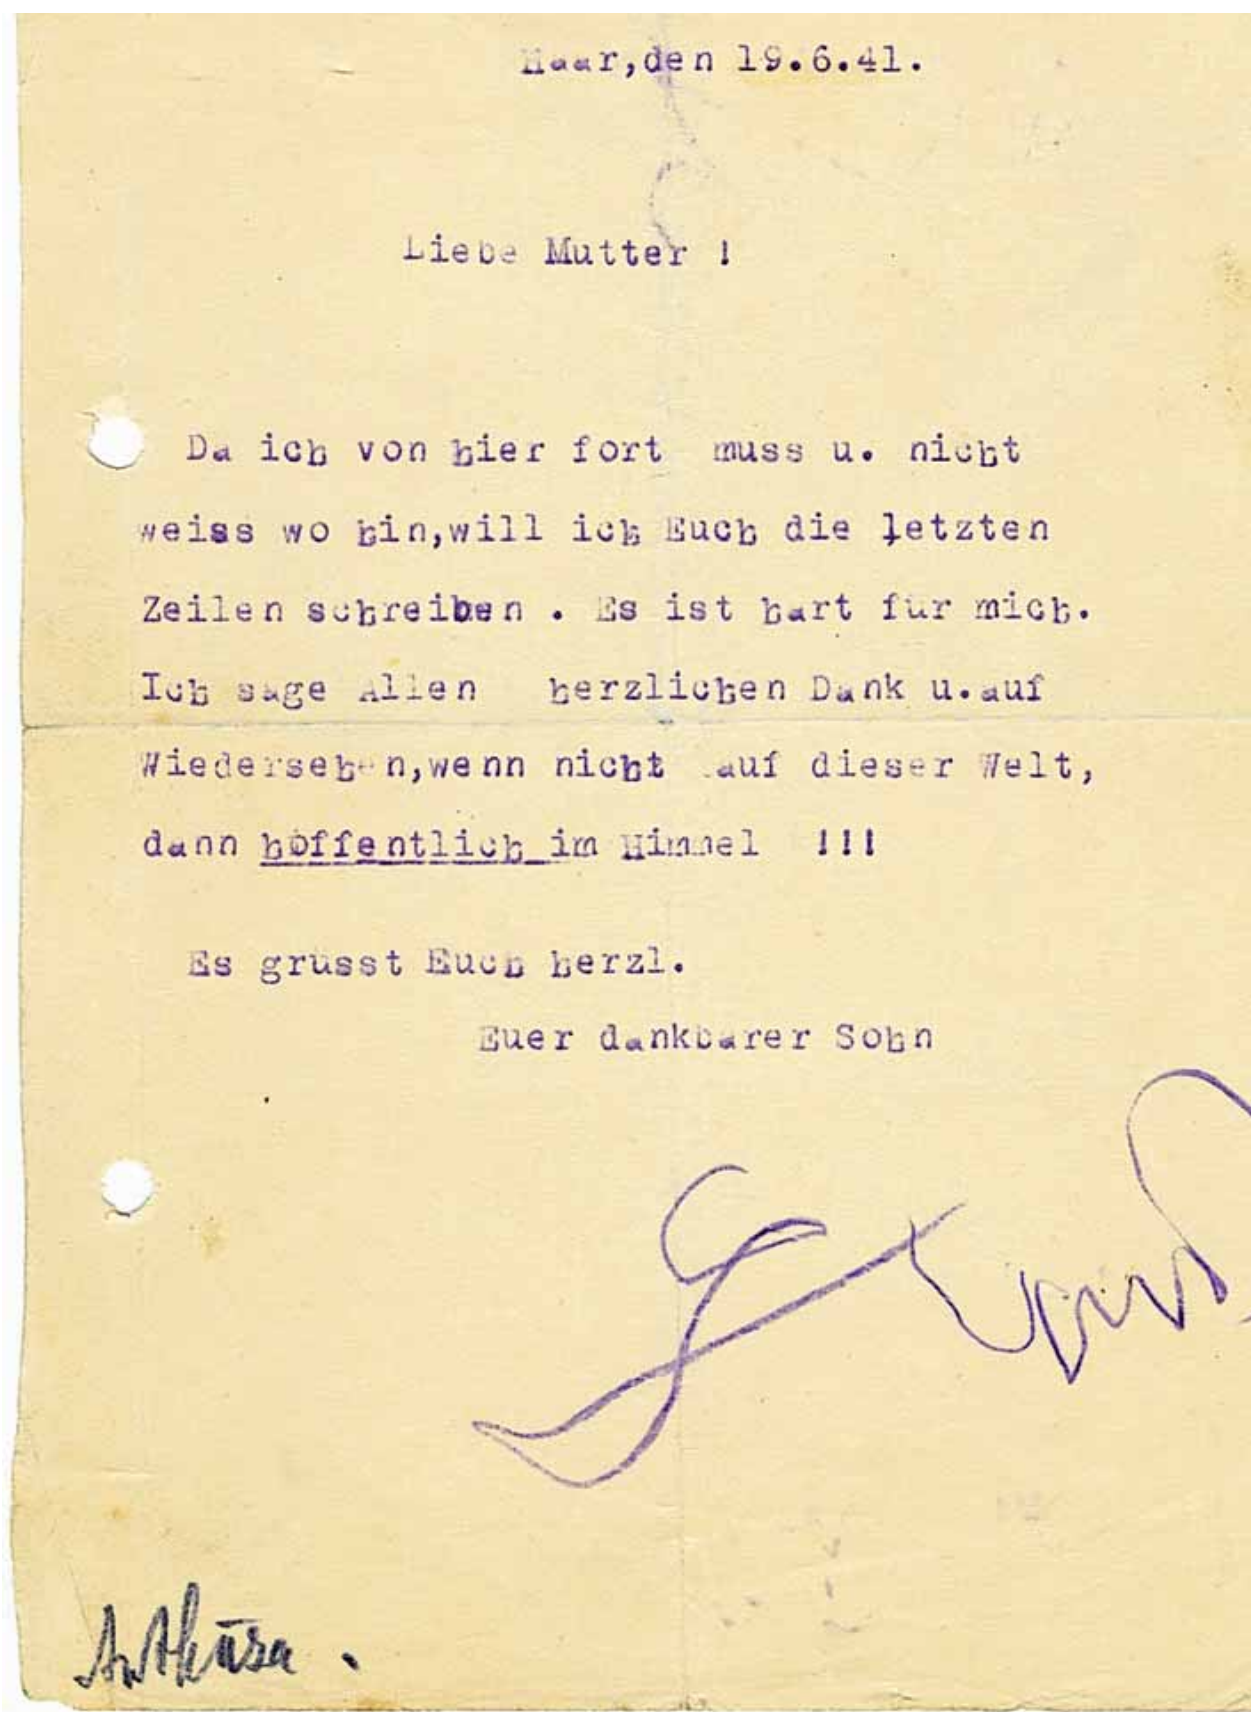 Haar,den 19.6.41.
Liebe Mutter !
Da ich von hier fort muss u. nicht
weiss wo hin,will ich Euch die letzten
Zeilen schreiben . Es ist hart für mich.
Ich sage Allen herzlichen Dank u.auf
Wiedersehen,wenn nicht auf dieser Welt,
dann hoffentlich im Himmel !!!
Es grüsst Euch herzl.
Euer dankbarer Sohn